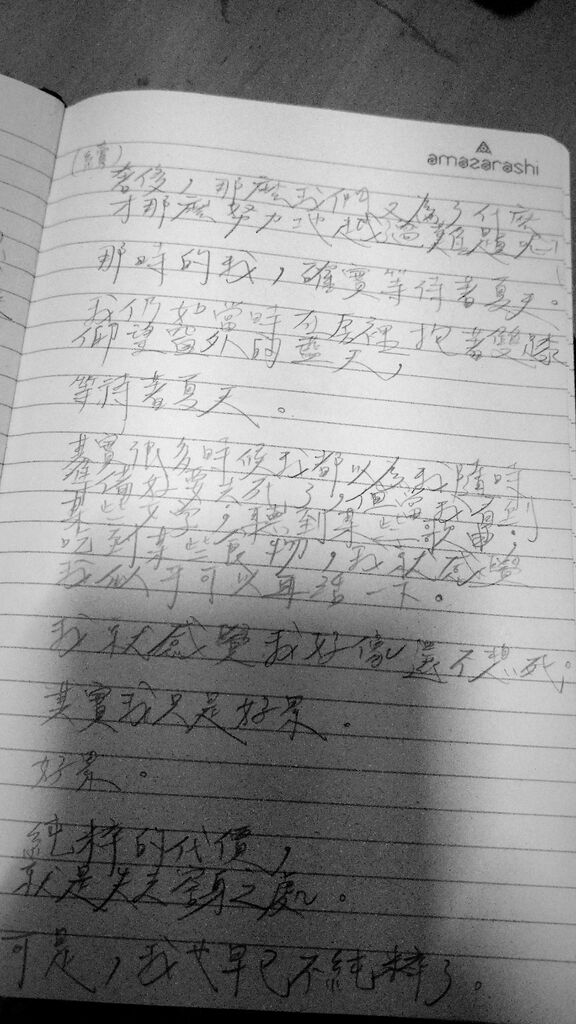 amazarashi
(續)
奢侈,那麼我們又為了什麼
才那麼努力地越過難題呢!
那時的我,確實等待著夏天。
我們如當時在房裡抱著雙膝
仰望窗外的藍天,
等待著夏天。
其實很多時候我都以為我隨時
準備好要去死了,但當我看到
某些文字,聽到某些歌曲,
吃到某些食物,我就感覺
我似乎可以再活一下。
我就感覺我好像還不想死。
其實我只是好累。
好累。
純粹的代價,
就是失去容身之處。
可是,我也早已不純粹了。